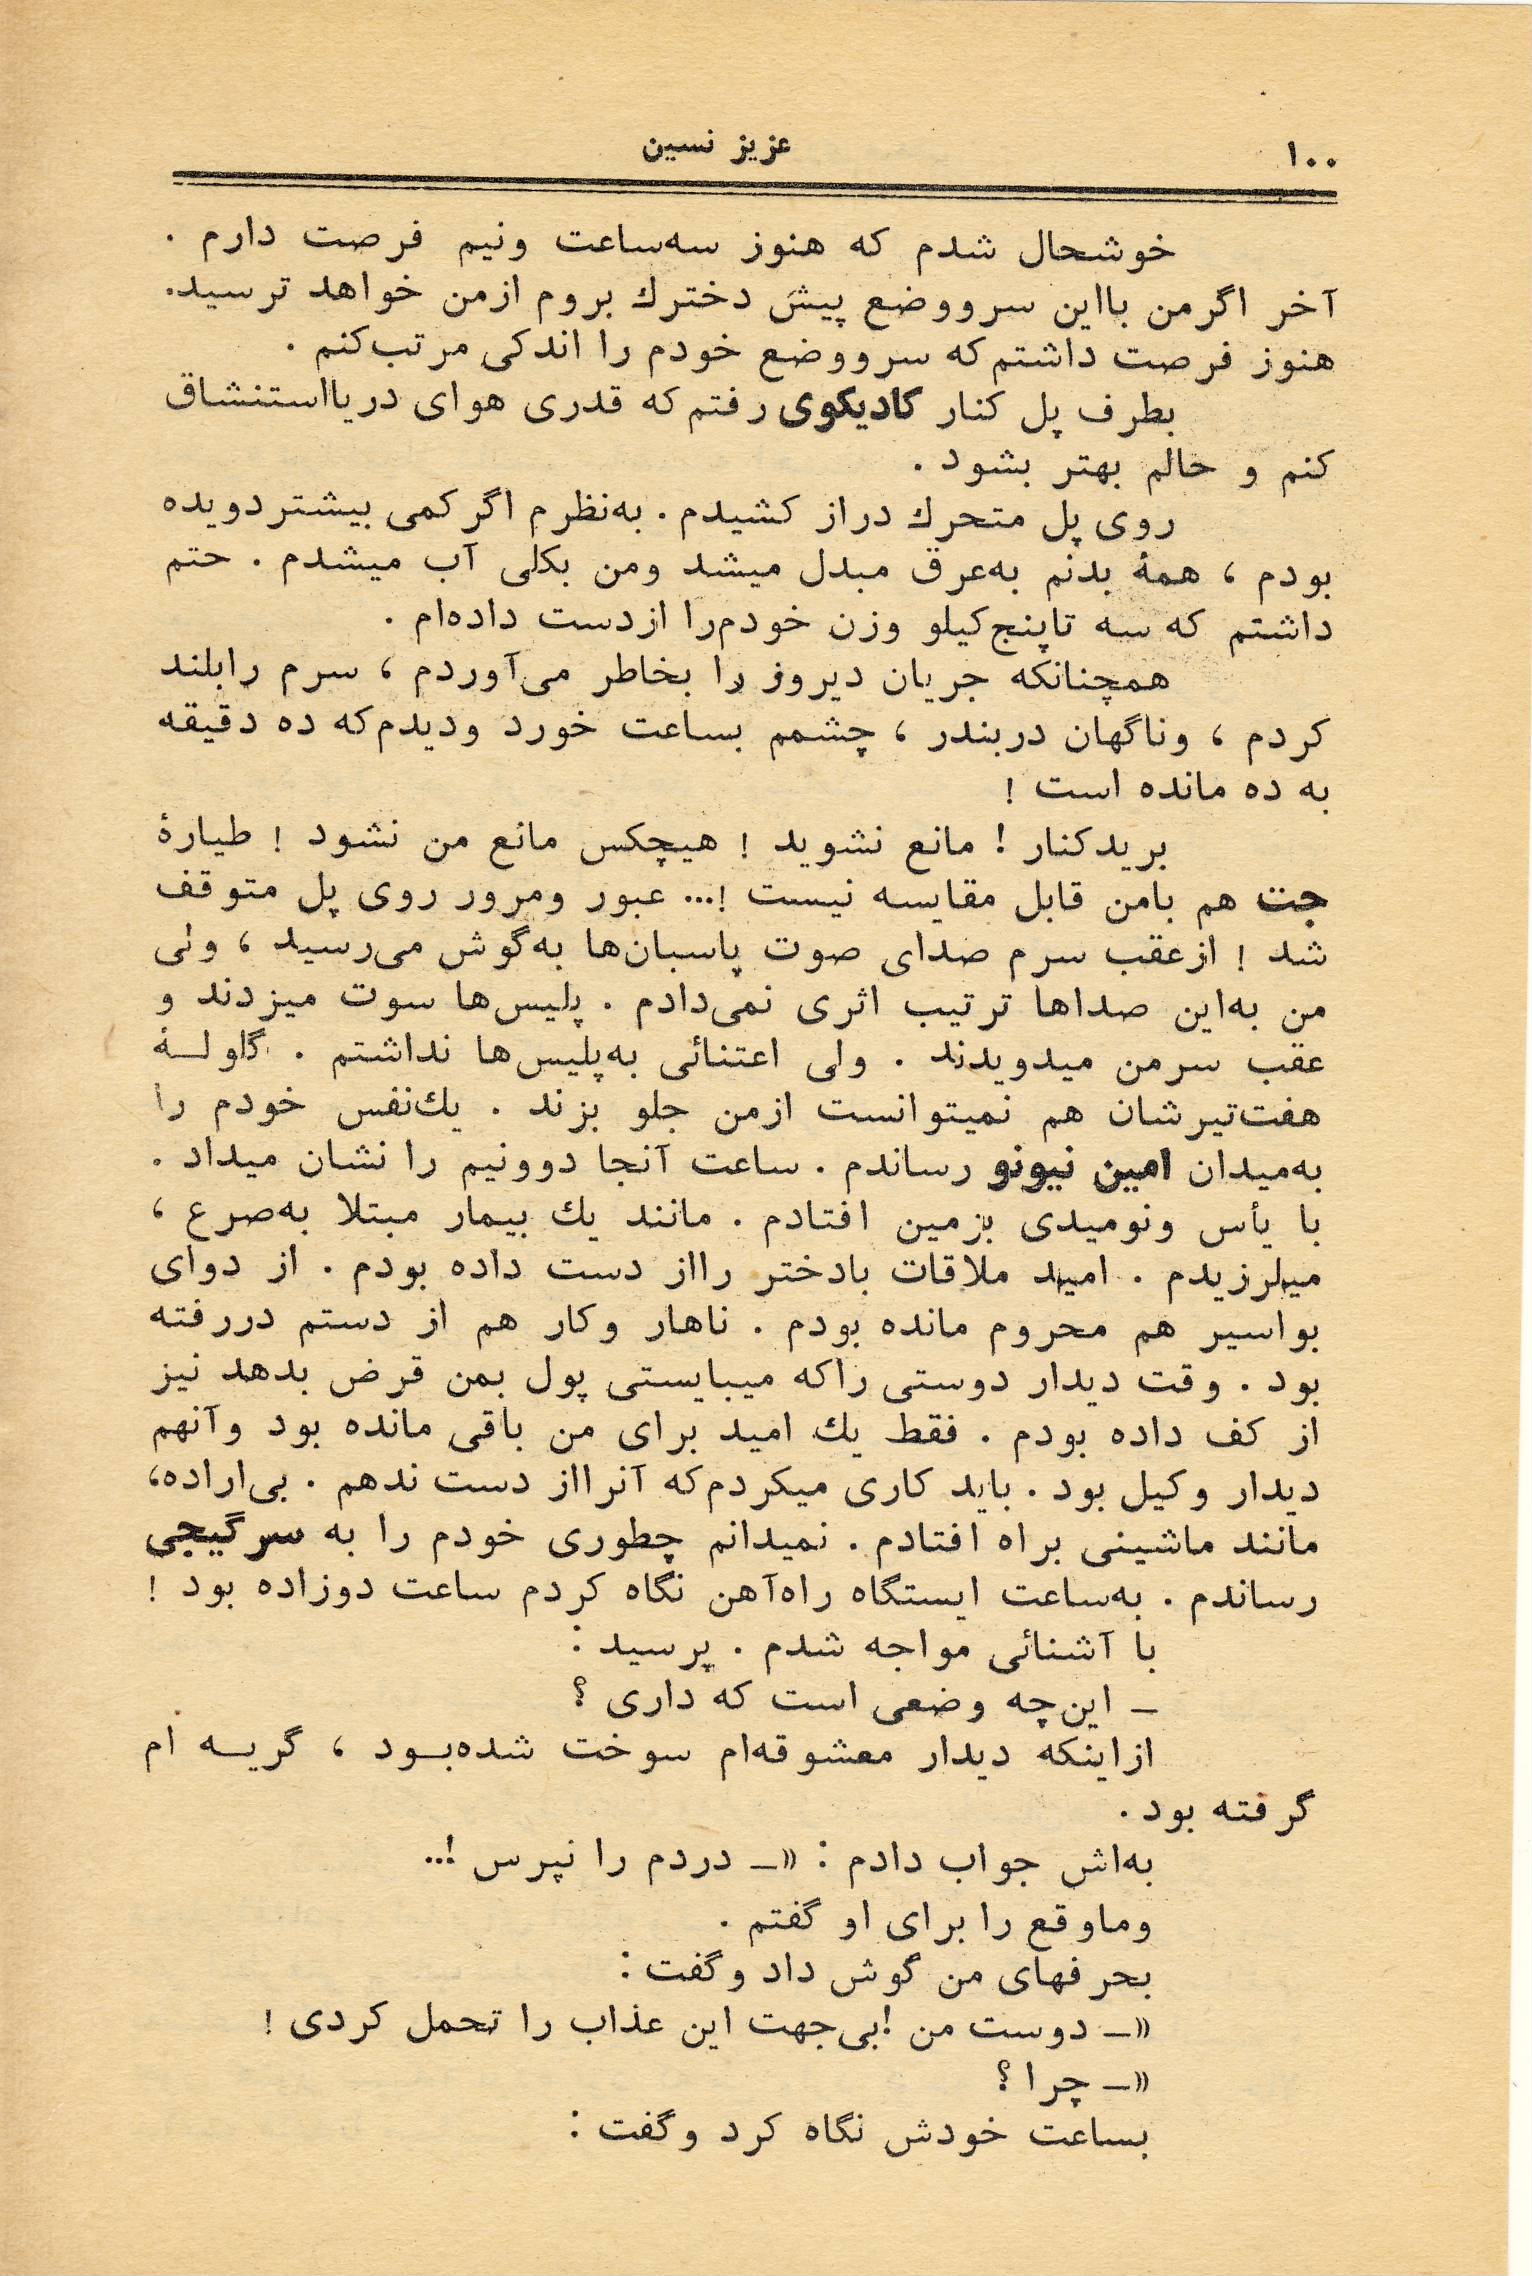 ۱۰۰
عزیز نسین
خوشحال شدم که هنوز سه‌ساعت ونیم فرصت دارم .
آخر اگرمن بااین سرووضع پیش دخترك بروم ازمن خواهد ترسید.
هنوز فرصت داشتم‌که سرووضع خودم را اندکی مرتب‌کنم .
بطرف پل کنار کادیکوی رفتم‌که قدری هوای دریااستنشاق
کنم و حالم بهتر بشود .
روی پل متحرك دراز کشیدم . به‌نظرم اگر کمی بیشتردویده
بودم ، همهٔ بدنم به‌عرق مبدل میشد ومن بکلی آب میشدم . حتم
داشتم که سه تاپنج‌کیلو وزن خودم‌را ازدست داده‌ام .
همچنانکه جریان دیروز را بخاطر می‌آوردم ، سرم رابلند
کردم ، وناگهان دربندر ، چشمم بساعت خورد ودیدم‌که ده دقیقه
به ده مانده است !
بریدکنار ! مانع نشوید ! هیچکس مانع من نشود ! طیارهٔ
جت هم بامن قابل مقایسه نیست !... عبور ومرور روی پل متوقف
شد ! ازعقب سرم صدای صوت پاسبان‌ها به‌گوش می‌رسید ، ولی
من به‌این صداها ترتیب اثری نمی‌دادم . پلیس‌ها سوت میزدند و
عقب سرمن میدویدند . ولی اعتنائی به‌پلیس‌ها نداشتم . گلولـهٔ
هفت‌تیرشان هم نمیتوانست ازمن جلو بزند . یك‌نفس خودم را
به‌میدان امین نیونو رساندم . ساعت آنجا دوونیم را نشان میداد .
با یأس ونومیدی بزمین افتادم . مانند یك بیمار مبتلا به‌صرع ،
میلرزیدم . امید ملاقات بادختر رااز دست داده بودم . از دوای
بواسیر هم محروم مانده بودم . ناهار وکار هم از دستم دررفته
بود . وقت دیدار دوستی راکه میبایستی پول بمن قرض بدهد نیز
از کف داده بودم . فقط یك امید برای من باقی مانده بود وآنهم
دیدار وکیل بود . باید کاری میکردم‌که آنرااز دست ندهم . بی‌اراده،
مانند ماشینی براه افتادم . نمیدانم چطوری خودم را به سرگیجی
رساندم . به‌ساعت ایستگاه راه‌آهن نگاه کردم ساعت دوزاده بود !
با آشنائی مواجه شدم . پرسید :
ـ این‌چه وضعی است که داری ؟
ازاینکه دیدار معشوقه‌ام سوخت شده‌بـود ، گریـه ام
گرفته بود .
به‌اش جواب دادم : «ـ دردم را نپرس !...
وماوقع را برای او گفتم .
بحرفهای من گوش داد وگفت :
«ـ دوست من !بی‌جهت این عذاب را تحمل کردی !
«ـ چرا ؟
بساعت خودش نگاه کرد وگفت :